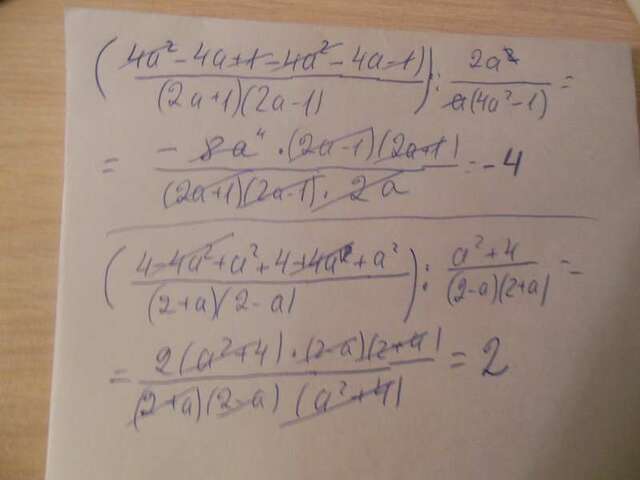 (4a² - 4a + 1 - 4a² - 4a - 1)/((2a+1)(2a-1)) : 2a²/(a(4a²-1)) =
= (-8a⁴ · (2a-1)(2a+1))/((2a+1)(2a-1) · 2a) = -4
(4 - 4a² + a² + 4 + 4a² + a²)/((2+a)(2-a)) : (a²+4)/((2-a)(2+a)) =
= (2(a²+4) · (2-a)(2+a))/((2+a)(2-a)(a²+4)) = 2